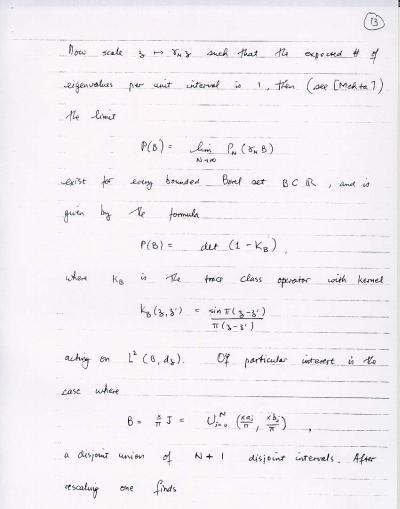 13
Now scale z ↦ γ_N z such that the expected # of
eigenvalues per unit interval is 1, then (see [Mehta])
the limit
P(B) = lim_{N→∞} P_N (γ_N B)
exist for every bounded Borel set B ⊂ ℝ, and is
given by the formula
P(B) = det (1 - K_B),
where K_B is the trace class operator with kernel
K_B(z,z') = sin π(z-z') / π(z-z')
acting on L²(B, dz). Of particular interest is the
case where
B = x/π J = ∪_{j=0}^N (xa_j/π, xb_j/π),
a disjoint union of N+1 disjoint intervals. After
rescaling one finds